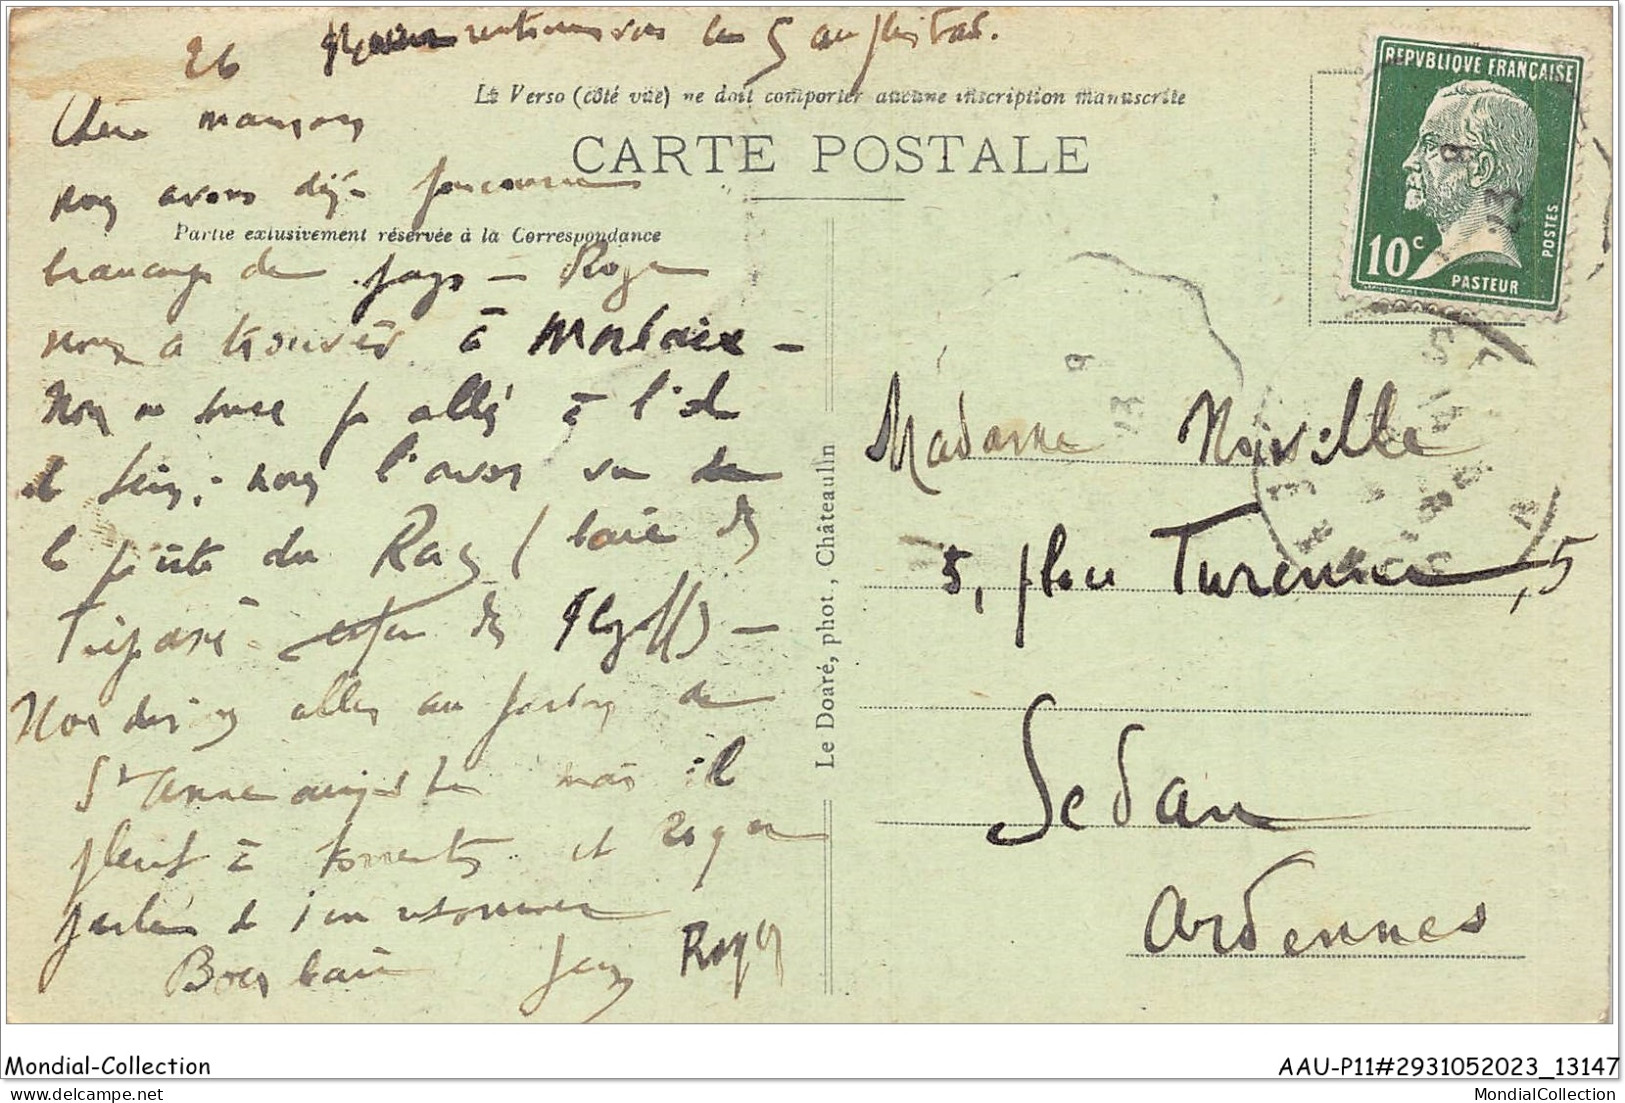 26 rentrerons le 5 au plus tard.
Le Verso (côté vue) ne doit comporter aucune inscription manuscrite
Chère maman
CARTE POSTALE
nous avons déjà parcouru
Partie exclusivement réservée à la Correspondance
beaucoup de pays – Roger
nous a trouvés à Morlaix –
Nous ne sommes pas allés à l'île
de Sein; nous l'avons vu de
la pointe du Raz (baie des
Trépassés enfer de Plogoff) –
Nous désirons aller au pardon de
Ste Anne aujourd'hui mais il
pleut à torrents et Roger
parle de s'en retourner
Bons baisers Roger
REPVBLIQVE FRANÇAISE
10c
PASTEUR
POSTES
Madame Noiville
5, place Turenne, 5
Sedan
Ardennes
Le Doaré, phot., Châteaulin
Mondial-Collection
AAU-P11#2931052023_13147
MondialCollection